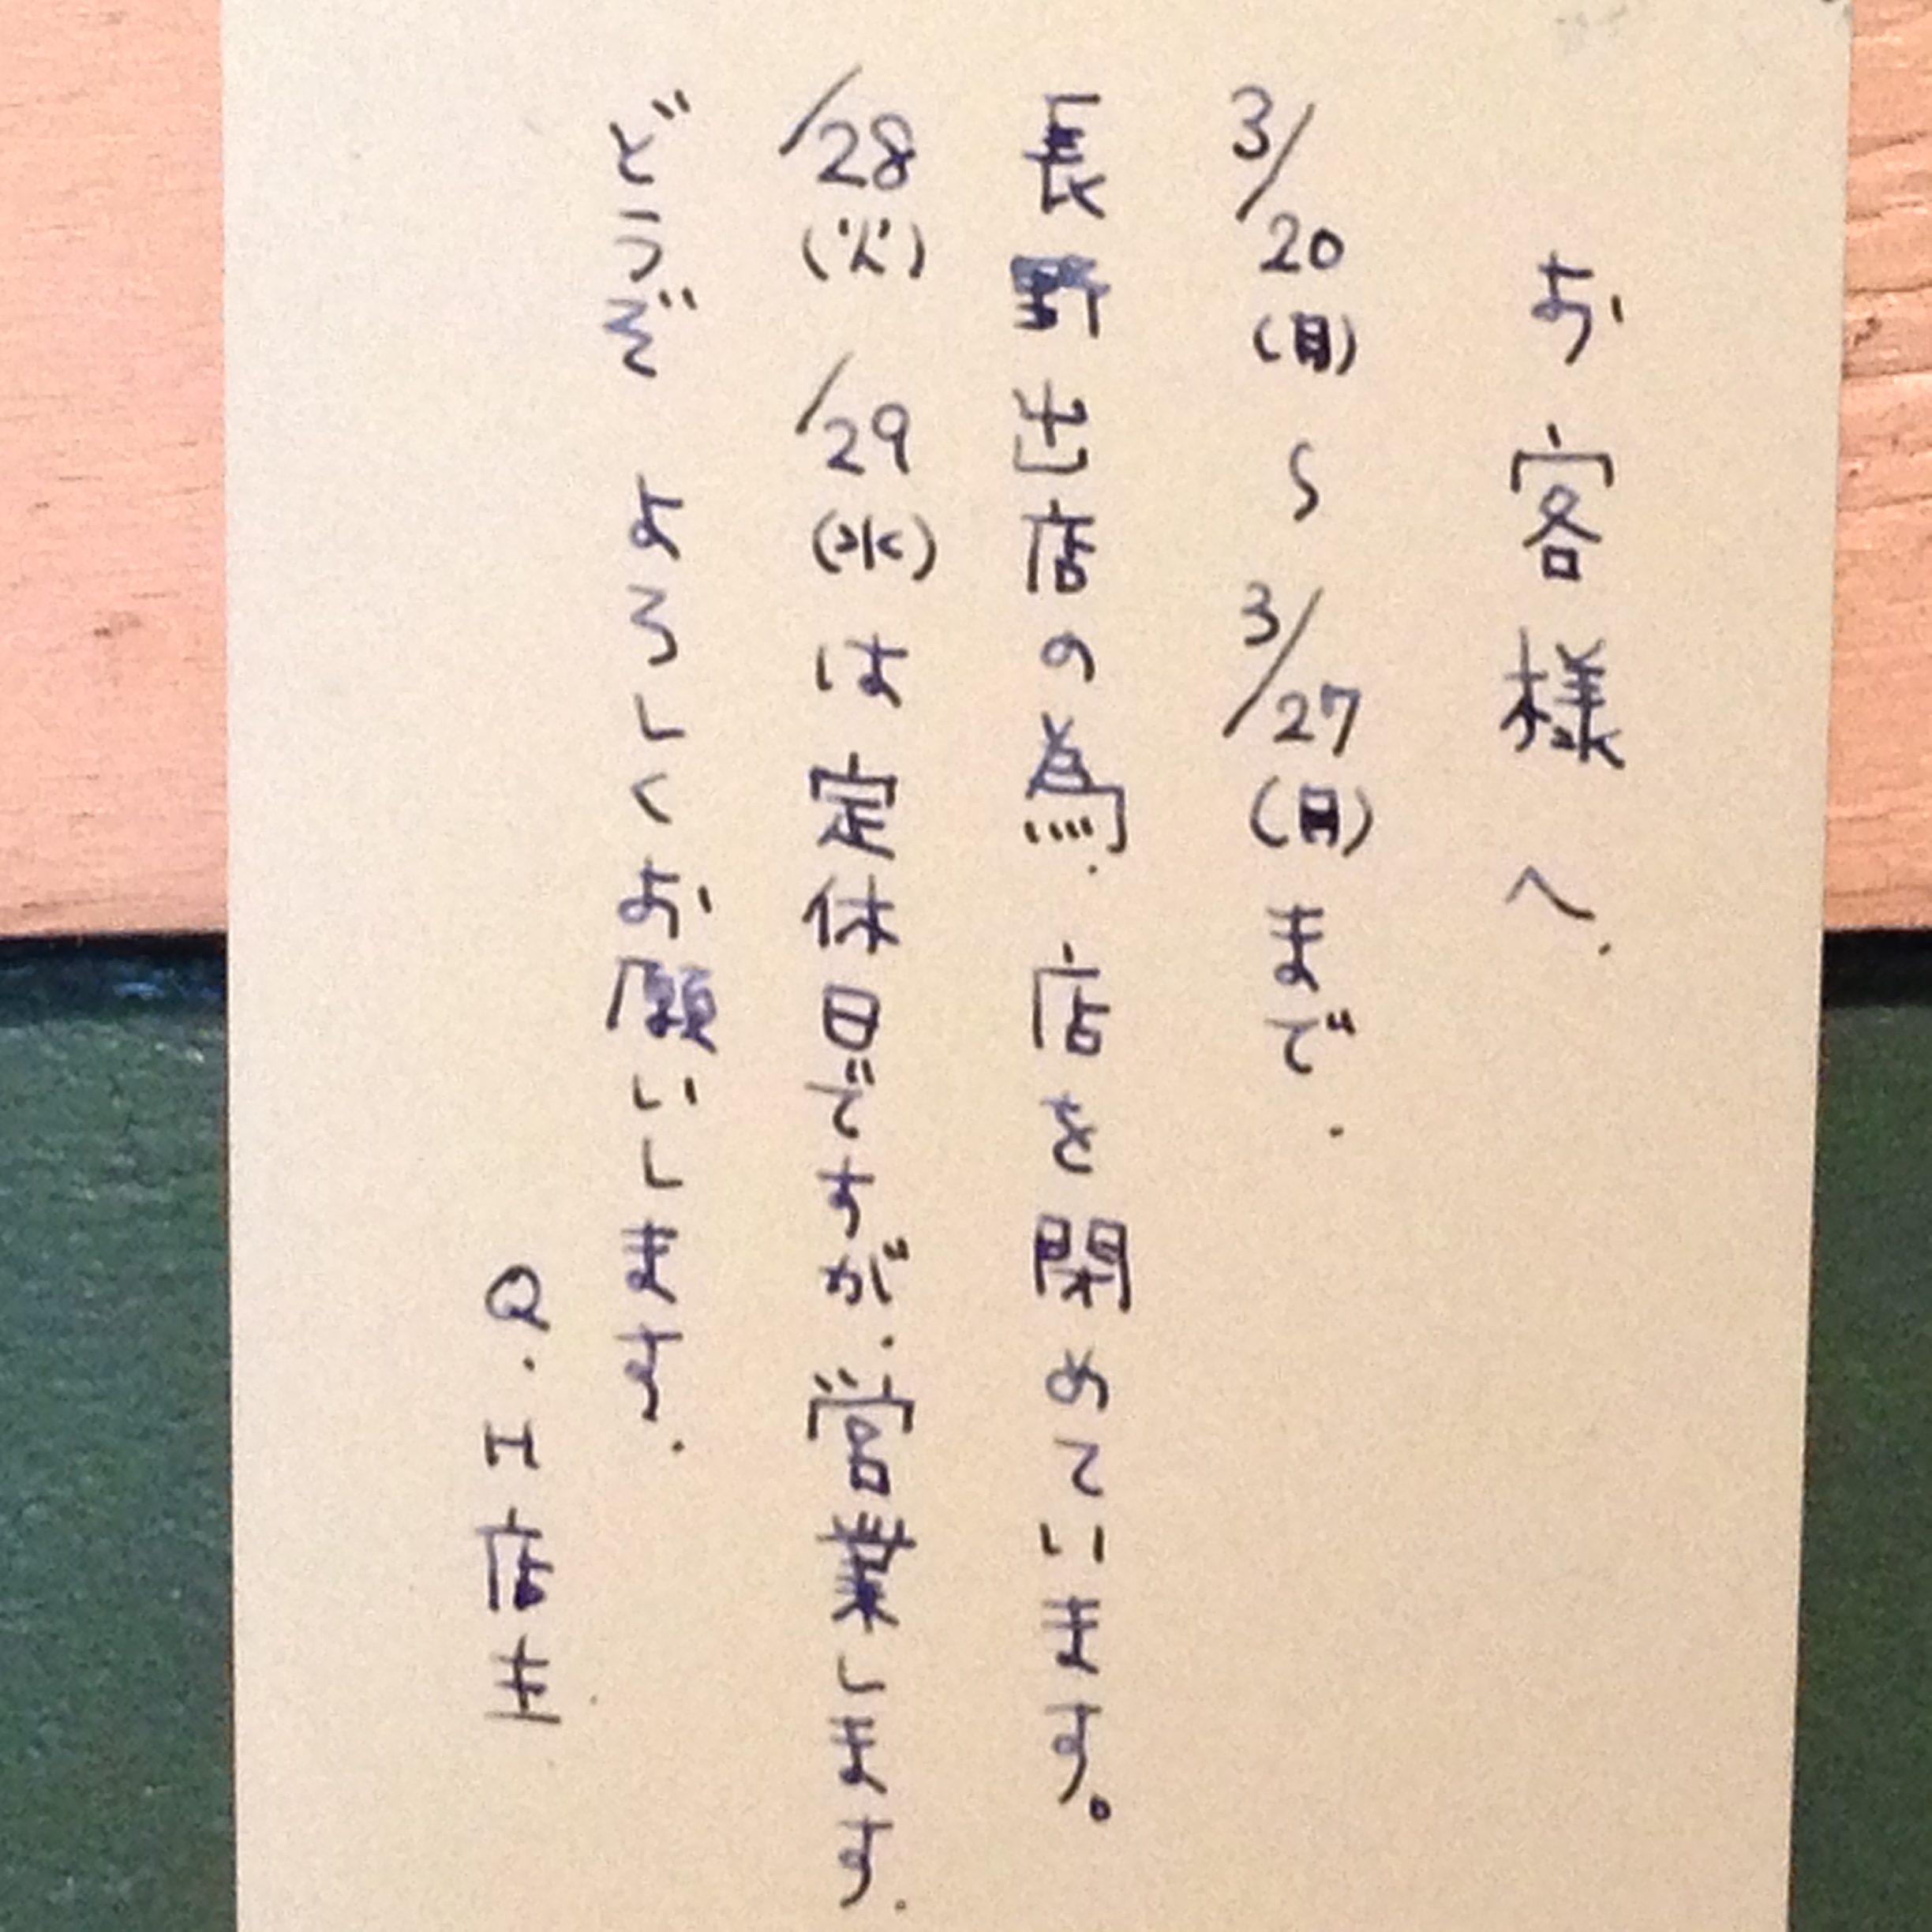 お客様へ.
3/20(日)〜3/27(日)まで.
長野出店の為.店を閉めています。
/28(火) /29(水)は定休日ですが.営業します.
どうぞ よろしくお願いします.
Q.I店主